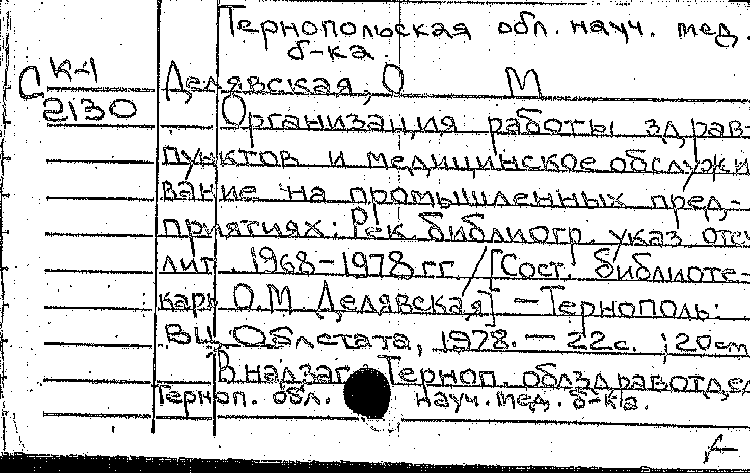 Тернопольская обл. науч. мед.
б-ка
С К-1
2130
Делявская, О М
Организация работы здрав-
пунктов и медицинское обслужи
вание на промышленных пред-
приятиях: Рек. библиогр. указ. отеч
лит. 1968-1978 гг. / [Сост. библиоте-
карь О.М Делявская] - Тернополь:
ВЦ Облстата, 1978. - 22с. ; 20см
В надзаг. Терноп. облздравотдел
Терноп. обл. науч. мед. б-ка.